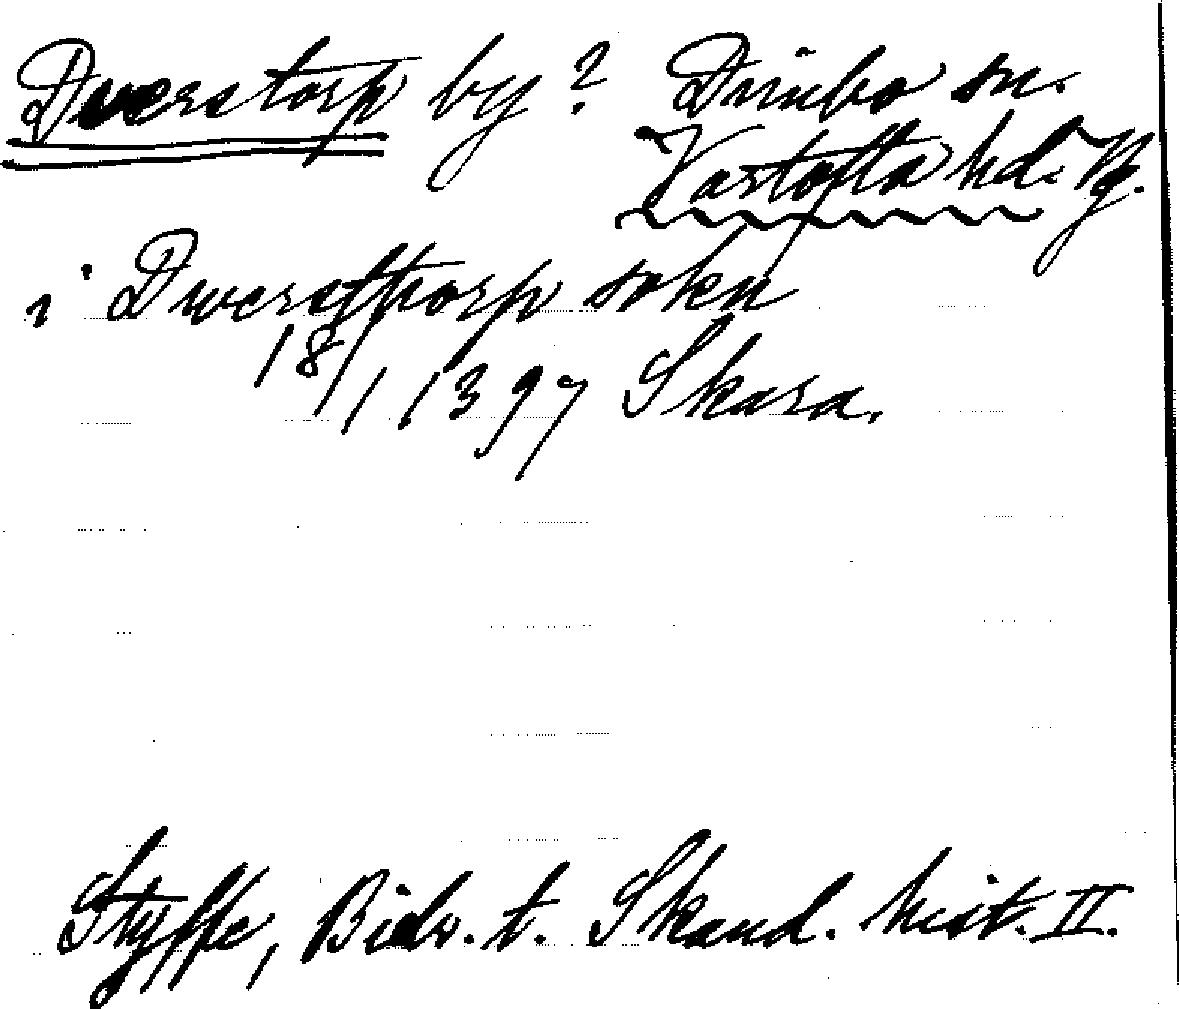 Dverstorp by? Dimbo sn.
Vartofta hd. Vg.
i Dwersthorp sokn
18/1 1397 Skara.
Styffe, Bidr. t. Skand. hist. II.